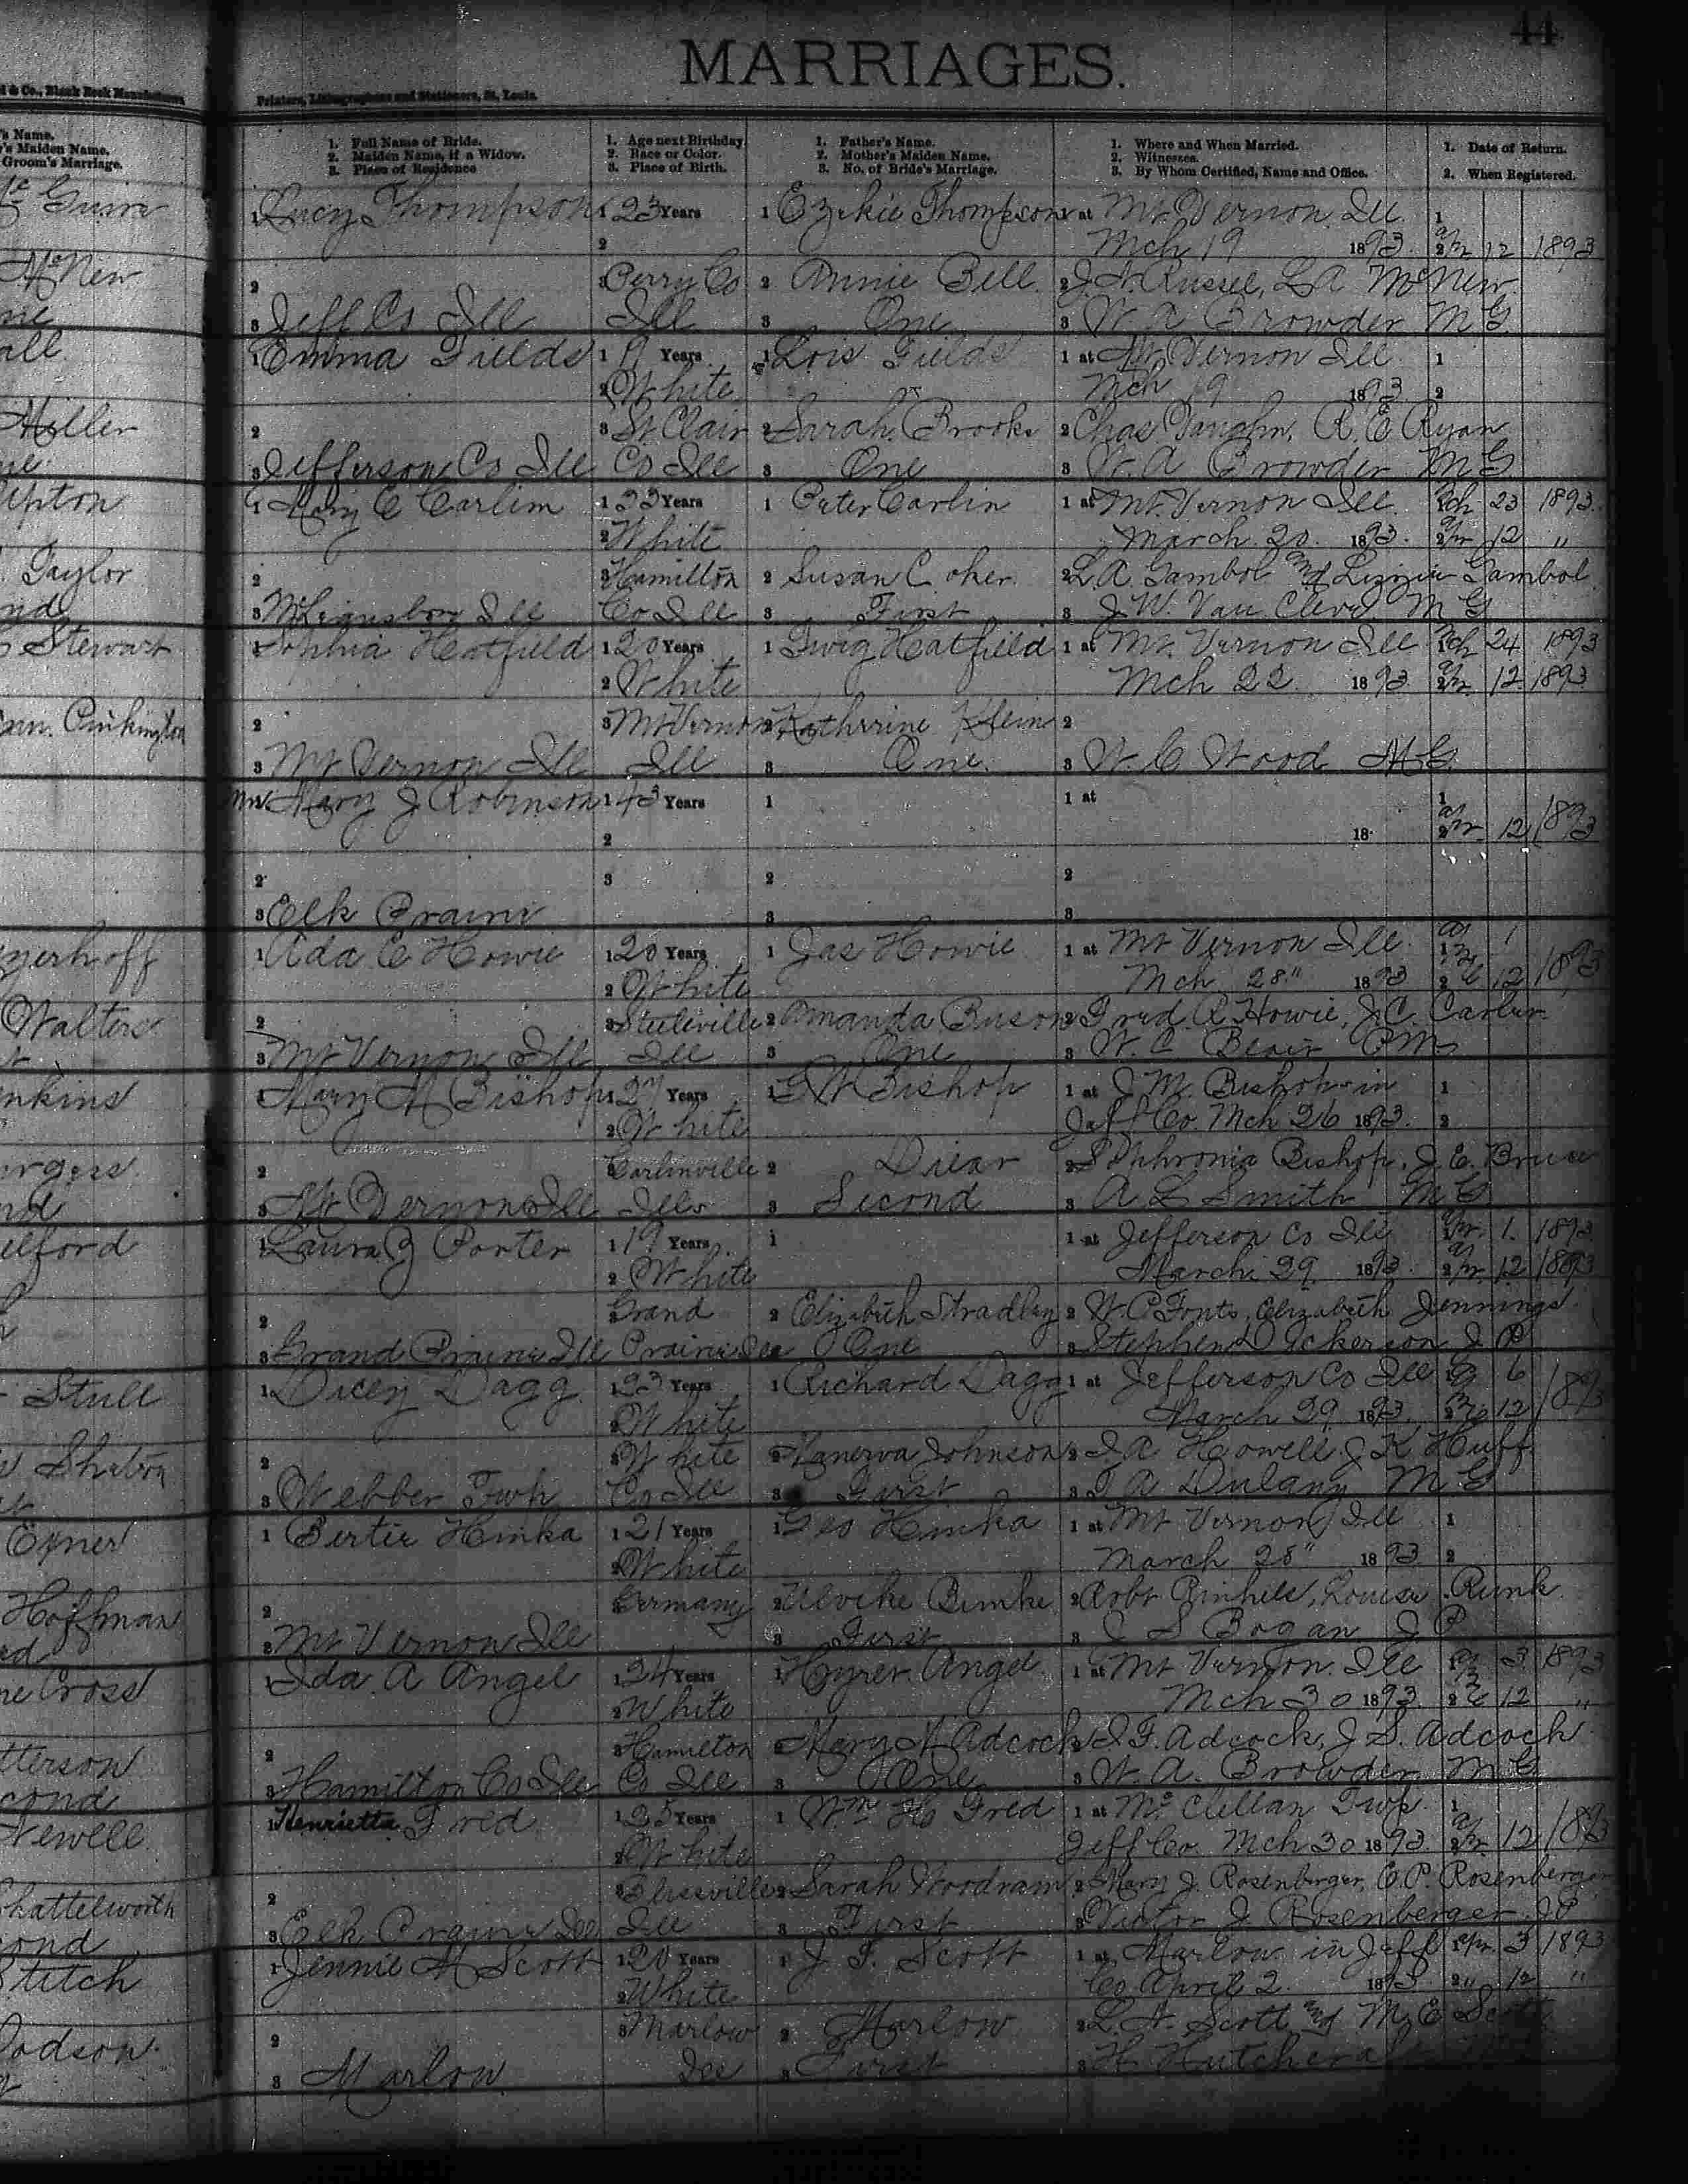 MARRIAGES.
44
& Co., Blank Book Manufacturers,
Printers, Lithographers and Stationers, St. Louis.
's Name.
's Maiden Name.
Groom's Marriage.
1. Full Name of Bride.
2. Maiden Name, if a Widow.
3. Place of Residence
1. Age next Birthday
2. Race or Color.
3. Place of Birth.
1. Father's Name.
2. Mother's Maiden Name.
3. No. of Bride's Marriage.
1. Where and When Married.
2. Witnesses.
3. By Whom Certified, Name and Office.
1. Date of Return.
2. When Registered.
Mc Guire
1 Lucy Thompson 1 23 Years 1 Ezekie Thompson 1 at Mt Vernon Ill 1
2 Mch 19 1893. 2 Apr 12 1893
McNew
2 3 Perry Co 2 Annie Bell. 2 Russel, L A McNew
3 Jeff Co Ill Ill 3 One 3 W A Browder M G
all
1 Emma Fields 1 19 Years 1 Lois Fields 1 at Mt Vernon Ill 1
2 White Mch 19 1893 2
Miller
2 3 St. Clair 2 Sarah Brooks 2 Chas Vaughn, R. E Ryan
3 Jefferson Co Ill Co Ill 3 One 3 W. A Browder M G
upton
1 Mary C Carlin 1 22 Years 1 Peter Carlin 1 at Mt. Vernon Ill Mch 23 1893
2 White March 20. 1893. 2 Apr 12 "
Taylor
2 3 Hamilton 2 Susan Coker 2 L. A. Gambol and Lizzie Gambol
nd
3 McLeansboro Ill Co Ill 3 First 3 J. W. Van Cleve M G
Stewart
1 Sophia Hatfield 1 20 Years 1 Hatfield 1 at Mt. Vernon Ill Mch 24 1893
2 White Mch 22 1893 2 Apr 12 1893
Pinkington
2 3 Mt Vernon 2 Katherine Klein 2
3 Mt Vernon Ill Ill 3 One. 3 W. C Wood M G
Mrs Mary J Robinson 1 43 Years 1 1 at 1
2 18 2 Apr 12 1893
2 3 2 2
3 Elk Prairie 3 3
yerhoff
1 Ada C Howie 1 20 Years 1 Jas Howie 1 at Mt Vernon Ill. 1 Apr 1
2 White Mch 28" 1893 2 12 1893
Walters
2 3 Steeleville 2 Amanda 2 Fred R Howie, J. C. Carter
3 Mt Vernon Ill Ill 3 One 3 W. C Blair
nkins
1 Mary M Bishop 1 27 Years 1 G W Bishop 1 at J. M. Bishop in 1
2 White Jeff Co. Mch 26 1893. 2
urgess
2 3 Carlinville 2 2 Sophronia Bishop, J. E. Bruce
nd
3 Mt Vernon Ill Ills 3 Second 3 A. L Smith M G
elford
1 Laura Porter 1 19 Years 1 1 at Jefferson Co Ill Apr. 1. 1893
2 White March 29 1893. 2 Apr. 12 1893
2 3 Grand 2 Elizabeth Stradley 2 W. P Fonts, Elizabeth Jennings
3 Grand Prairie Ill Prairie Ill 3 One 3 Stephen Dickerson J P
Stull
1 Dicey Dagg 1 23 Years 1 Richard Dagg 1 at Jefferson Co Ill 6
2 White March 29 1893. 2 12 1893
Shelton
2 3 White 2 Manerva Johnson 2 I A Howell. J K Huff.
3 Webber Twp Co Ill 3 First 3 Dulany M G
Exner
1 Bertie Hinka 1 21 Years 1 Geo Hinka 1 at Mt Vernon Ill 1
2 White March 28" 1893 2
Hoffman
2 3 Germany 2 2 Robt Louisa Runk
3 Mt Vernon Ill 3 First 3 J S Bogan J P
ne Cross
1 Ida A Angel 1 24 Years 1 Angel 1 at Mt Vernon Ill 3 1893
2 White Mch 30 1893. 2 12 "
tterson
2 3 Hamilton 2 Mary Adcock 2 Adcock, J. S. Adcock
cond
3 Hamilton Co Ill Co Ill 3 One 3 W. A. Browder M G
Newell
1 Henrietta Fred 1 25 Years 1 Wm H Fred 1 at Mc Clellan Twp. 1
2 White Jeff Co. Mch 30 1893 2 Apr 12 1893
hattelworth
2 3 Blissville 2 Sarah Woodram 2 Mary J. Rosenberger, C. P. Rosenberger
ond
3 Elk Prairie Ill Ill 3 First 3 Victor J Rosenberger J P
Stitch
1 Jennie M Scott 1 20 Years 1 J. F. Scott 1 at Marlow in Jeff Apr 3 1893
2 White Co April 2 1893 2 " 12 "
2 3 Marlow 2 Marlow 2 Scott and M. E Scott
Dodson
3 Marlow Ill 3 First 3 H Hutchcraft